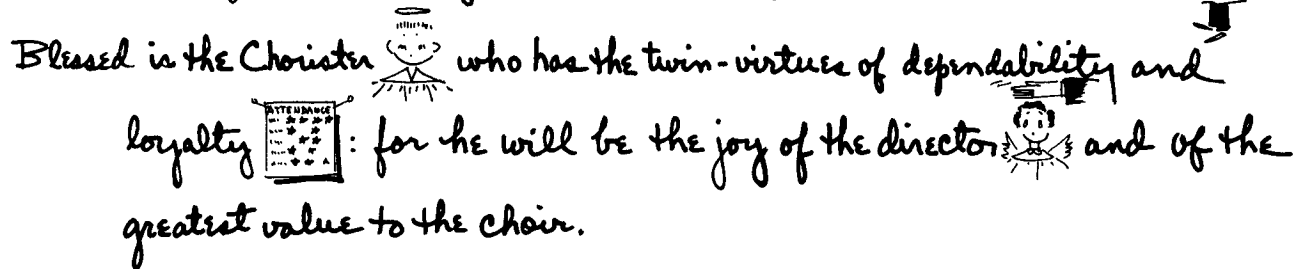 Blessed is the Chorister who has the twin-virtues of dependability and
loyalty ATTENDANCE : for he will be the joy of the director and of the
greatest value to the choir.